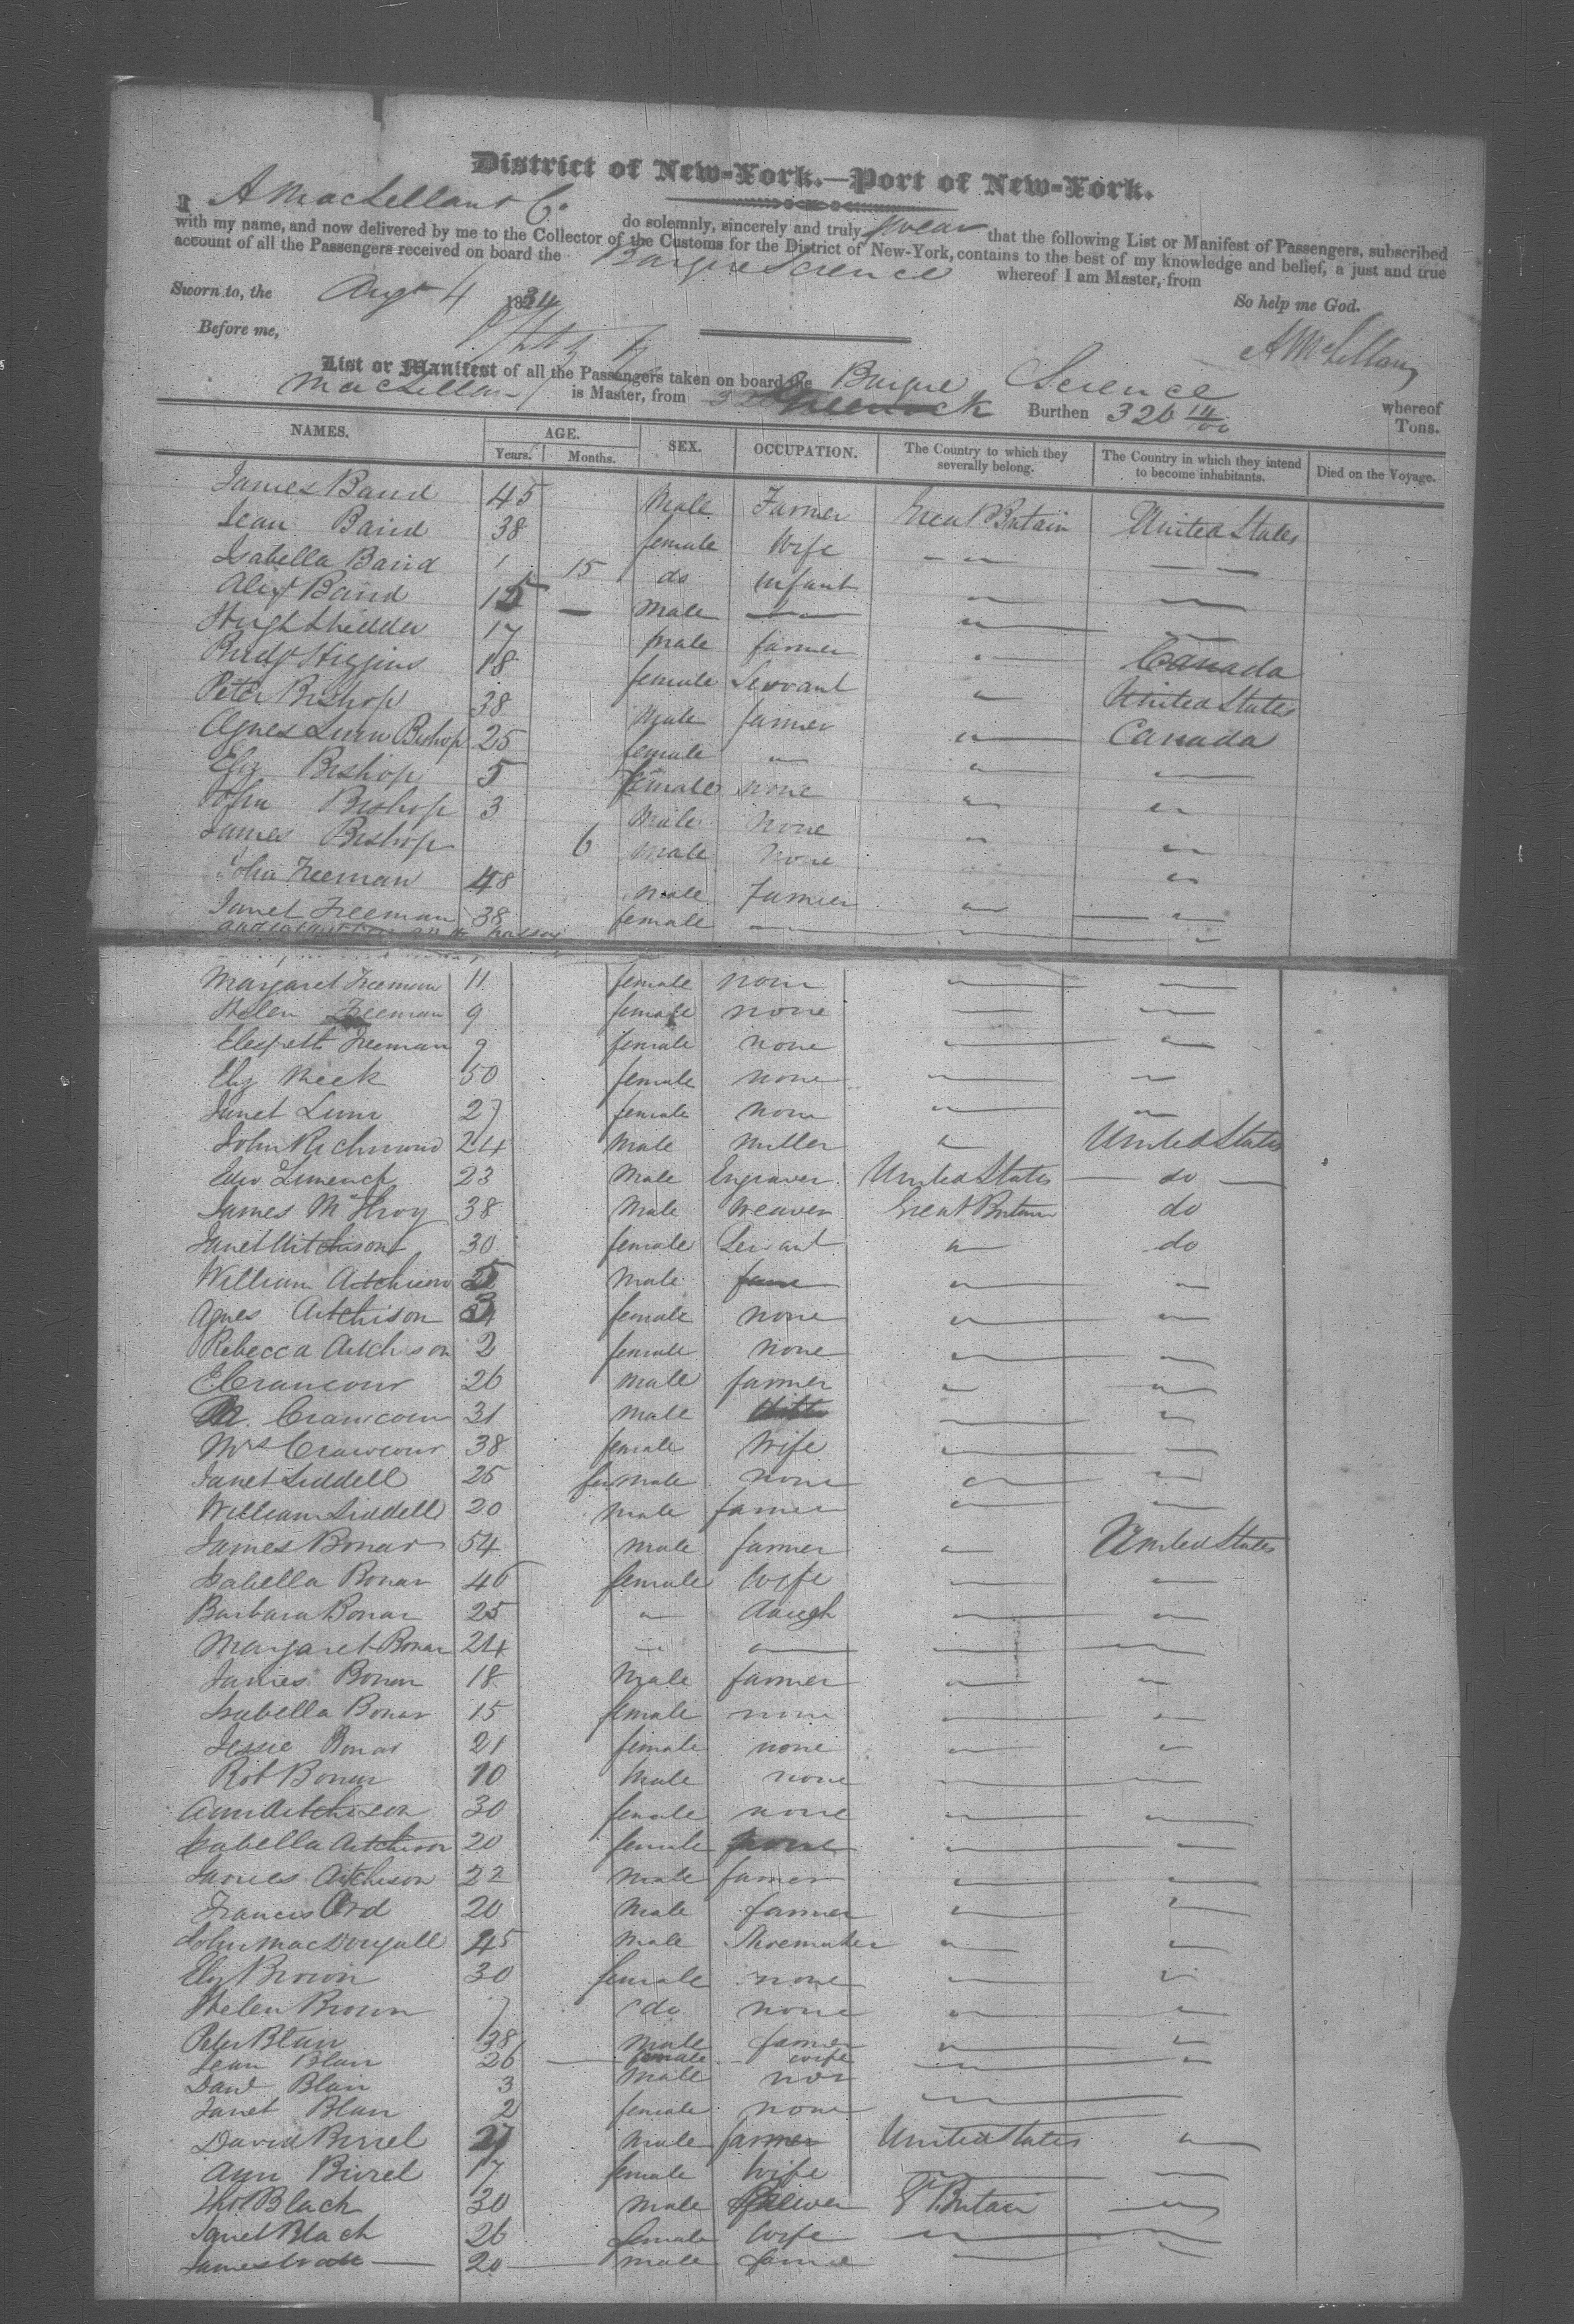 District of New-York.—Port of New-York.
I A MacLellan & Co do solemnly, sincerely and truly swear that the following List or Manifest of Passengers, subscribed
with my name, and now delivered by me to the Collector of the Customs for the District of New-York, contains to the best of my knowledge and belief, a just and true
account of all the Passengers received on board the Barque Science whereof I am Master, from
Sworn to, the Augt 4 1834 So help me God.
Before me, A McLellan
List or Manifest of all the Passengers taken on board the Barque Science whereof
MacLellan is Master, from Greenock Burthen 326 14/100 Tons.
NAMES. AGE. SEX. OCCUPATION. The Country to which they severally belong. The Country in which they intend to become inhabitants. Died on the Voyage.
Years. Months.
James Baird 45 Male Farmer Great Britain United States
Jean Baird 38 female Wife
Isabella Baird 15 do infant
Alexr Baird 15 — Male
Hugh 17 male farmer Canada
Bridgt Higgins 18 female Servant United States
Peter Bishop 38 Male farmer Canada
Agnes Bishop 25 female
Eliz Bishop 5 female none
John Bishop 3 Male None
James Bishop 6 male None
John Freeman 48 male Farmer
Janet Freeman 38 female
Margaret Freeman 11 female none
Helen Freeman 9 female none
Elespeth Freeman 9 female none
Eliz Meek 50 female none
Janet 27 female none
John Richmond 24 Male Miller United States
23 Male Engraver United States do
James McIlroy 38 Male Weaver Great Britain do
Janet Aitchison 30 female Servant do
William Aitchison 5 Male
Agnes Aitchison 3 female none
Rebecca Aitchison 2 female none
E Crawcour 26 Male farmer
M. Crawcour 31 Male
Mrs Crawcour 38 female Wife
Janet Liddell 25 female none
William Liddell 20 male farmer
James Bonar 54 male farmer United States
Isabella Bonar 46 female Wife
Barbara Bonar 25 Daugh
Margaret Bonar 24
James Bonar 18 Male farmer
Isabella Bonar 15 female none
Jessie Bonar 21 female none
Rob Bonar 10 Male none
Ann Aitchison 30 female none
Isabella Aitchison 20 female
James Aitchison 22 Male farmer
Francis Ord 20 Male farmer
John MacDougall 45 Male Shoemaker
Eliz Brown 30 female none
Helen Brown 7 do none
Peter Blair 38 male farmer
Jean Blair 26 female wife
David Blair 3 Male non
Janet Blair 2 female none
David Birrel 27 Male farmer United States
Ann Birrel 17 female Wife
Thos Black 30 Male Brewer Gt Britain
Janet Black 26 female Wife
James 20 male farmer